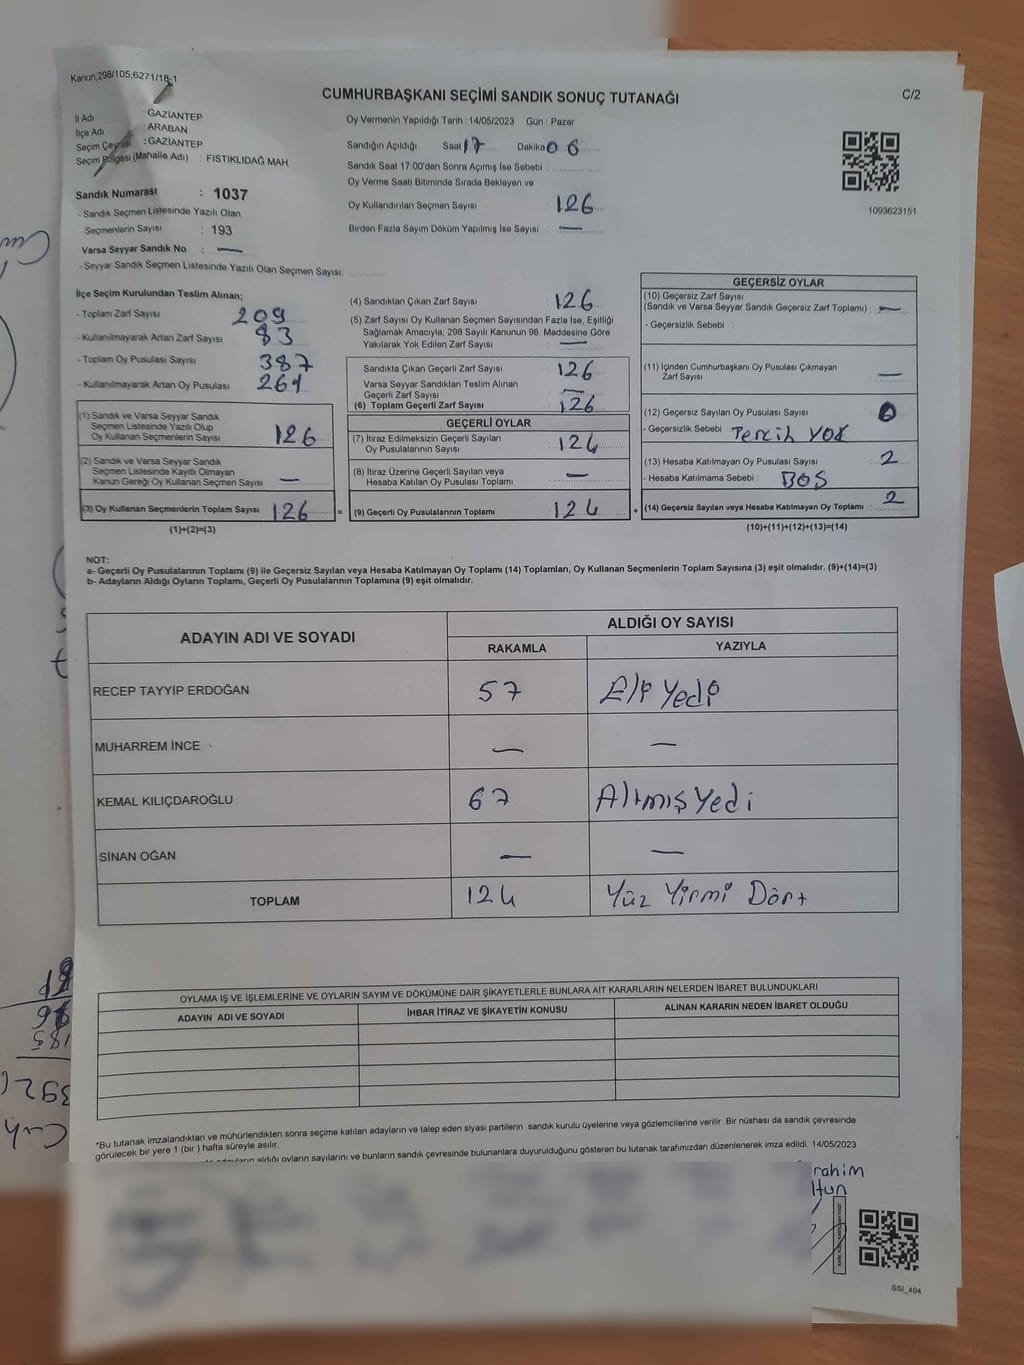 Kanun;298/105;6271/18-1
CUMHURBAŞKANI SEÇİMİ SANDIK SONUÇ TUTANAĞI
C/2
İl Adı GAZİANTEP
İlçe Adı ARABAN
Seçim Çevresi : GAZİANTEP
Seçim Bölgesi (Mahalle Adı) : FISTIKLIDAĞ MAH.
Sandık Numarası : 1037
- Sandık Seçmen Listesinde Yazılı Olan
Seçmenlerin Sayısı : 193
Varsa Seyyar Sandık No : —
- Seyyar Sandık Seçmen Listesinde Yazılı Olan Seçmen Sayısı:
Oy Vermenin Yapıldığı Tarih : 14/05/2023 Gün : Pazar
Sandığın Açıldığı Saat 17 Dakika 06
Sandık Saat 17:00'den Sonra Açımış İse Sebebi :
Oy Verme Saati Bitiminde Sırada Bekleyen ve
Oy Kullandırılan Seçmen Sayısı : 126
Birden Fazla Sayım Döküm Yapılmış İse Sayısı : —
1093623151
İlçe Seçim Kurulundan Teslim Alınan;
- Toplam Zarf Sayısı 209
- Kullanılmayarak Artan Zarf Sayısı 83
- Toplam Oy Pusulası Sayısı 387
- Kullanılmayarak Artan Oy Pusulası 261
(1) Sandık ve Varsa Seyyar Sandık
Seçmen Listesinde Yazılı Olup
Oy Kullanan Seçmenlerin Sayısı 126
(2) Sandık ve Varsa Seyyar Sandık
Seçmen Listesinde Kayıtlı Olmayan
Kanun Gereği Oy Kullanan Seçmen Sayısı —
(3) Oy Kullanan Seçmenlerin Toplam Sayısı 126 =
(1)+(2)=(3)
(4) Sandıktan Çıkan Zarf Sayısı : 126
(5) Zarf Sayısı Oy Kullanan Seçmen Sayısından Fazla İse, Eşitliği
Sağlamak Amacıyla; 298 Sayılı Kanunun 98. Maddesine Göre
Yakılarak Yok Edilen Zarf Sayısı : —
Sandıkta Çıkan Geçerli Zarf Sayısı : 126
Varsa Seyyar Sandıktan Teslim Alınan
Geçerli Zarf Sayısı : —
(6) Toplam Geçerli Zarf Sayısı : 126
GEÇERLİ OYLAR
(7) İtiraz Edilmeksizin Geçerli Sayılan
Oy Pusulalarının Sayısı : 124
(8) İtiraz Üzerine Geçerli Sayılan veya
Hesaba Katılan Oy Pusulası Toplamı : —
(9) Geçerli Oy Pusulalarının Toplamı : 124 +
GEÇERSİZ OYLAR
(10) Geçersiz Zarf Sayısı
(Sandık ve Varsa Seyyar Sandık Geçersiz Zarf Toplamı) : —
- Geçersizlik Sebebi :
(11) İçinden Cumhurbaşkanı Oy Pusulası Çıkmayan
Zarf Sayısı : —
(12) Geçersiz Sayılan Oy Pusulası Sayısı : 0
- Geçersizlik Sebebi : Tercih YOK
(13) Hesaba Katılmayan Oy Pusulası Sayısı : 2
- Hesaba Katılmama Sebebi : BOŞ
(14) Geçersiz Sayılan veya Hesaba Katılmayan Oy Toplamı : 2
(10)+(11)+(12)+(13)=(14)
NOT:
a- Geçerli Oy Pusulalarının Toplamı (9) ile Geçersiz Sayılan veya Hesaba Katılmayan Oy Toplamı (14) Toplamları, Oy Kullanan Seçmenlerin Toplam Sayısına (3) eşit olmalıdır. (9)+(14)=(3)
b- Adayların Aldığı Oyların Toplamı, Geçerli Oy Pusulalarının Toplamına (9) eşit olmalıdır.
ADAYIN ADI VE SOYADI ALDIĞI OY SAYISI
RAKAMLA YAZIYLA
RECEP TAYYİP ERDOĞAN 57 Elli Yedi
MUHARREM İNCE — —
KEMAL KILIÇDAROĞLU 67 Altmış Yedi
SİNAN OĞAN — —
TOPLAM 124 Yüz Yirmi Dört
OYLAMA İŞ VE İŞLEMLERİNE VE OYLARIN SAYIM VE DÖKÜMÜNE DAİR ŞİKAYETLERLE BUNLARA AİT KARARLARIN NELERDEN İBARET BULUNDUKLARI
ADAYIN ADI VE SOYADI İHBAR İTİRAZ VE ŞİKAYETİN KONUSU ALINAN KARARIN NEDEN İBARET OLDUĞU
*Bu tutanak imzalandıktan ve mühürlendikten sonra seçime katılan adayların ve talep eden siyasi partilerin sandık kurulu üyelerine veya gözlemcilerine verilir. Bir nüshası da sandık çevresinde
görülecek bir yere 1 (bir) hafta süreyle asılır.
aldığı oyların sayılarını ve bunların sandık çevresinde bulunanlara duyurulduğunu gösteren bu tutanak tarafımızdan düzenlenerek imza edildi. 14/05/2023
rahim
ltun
SSİ_404